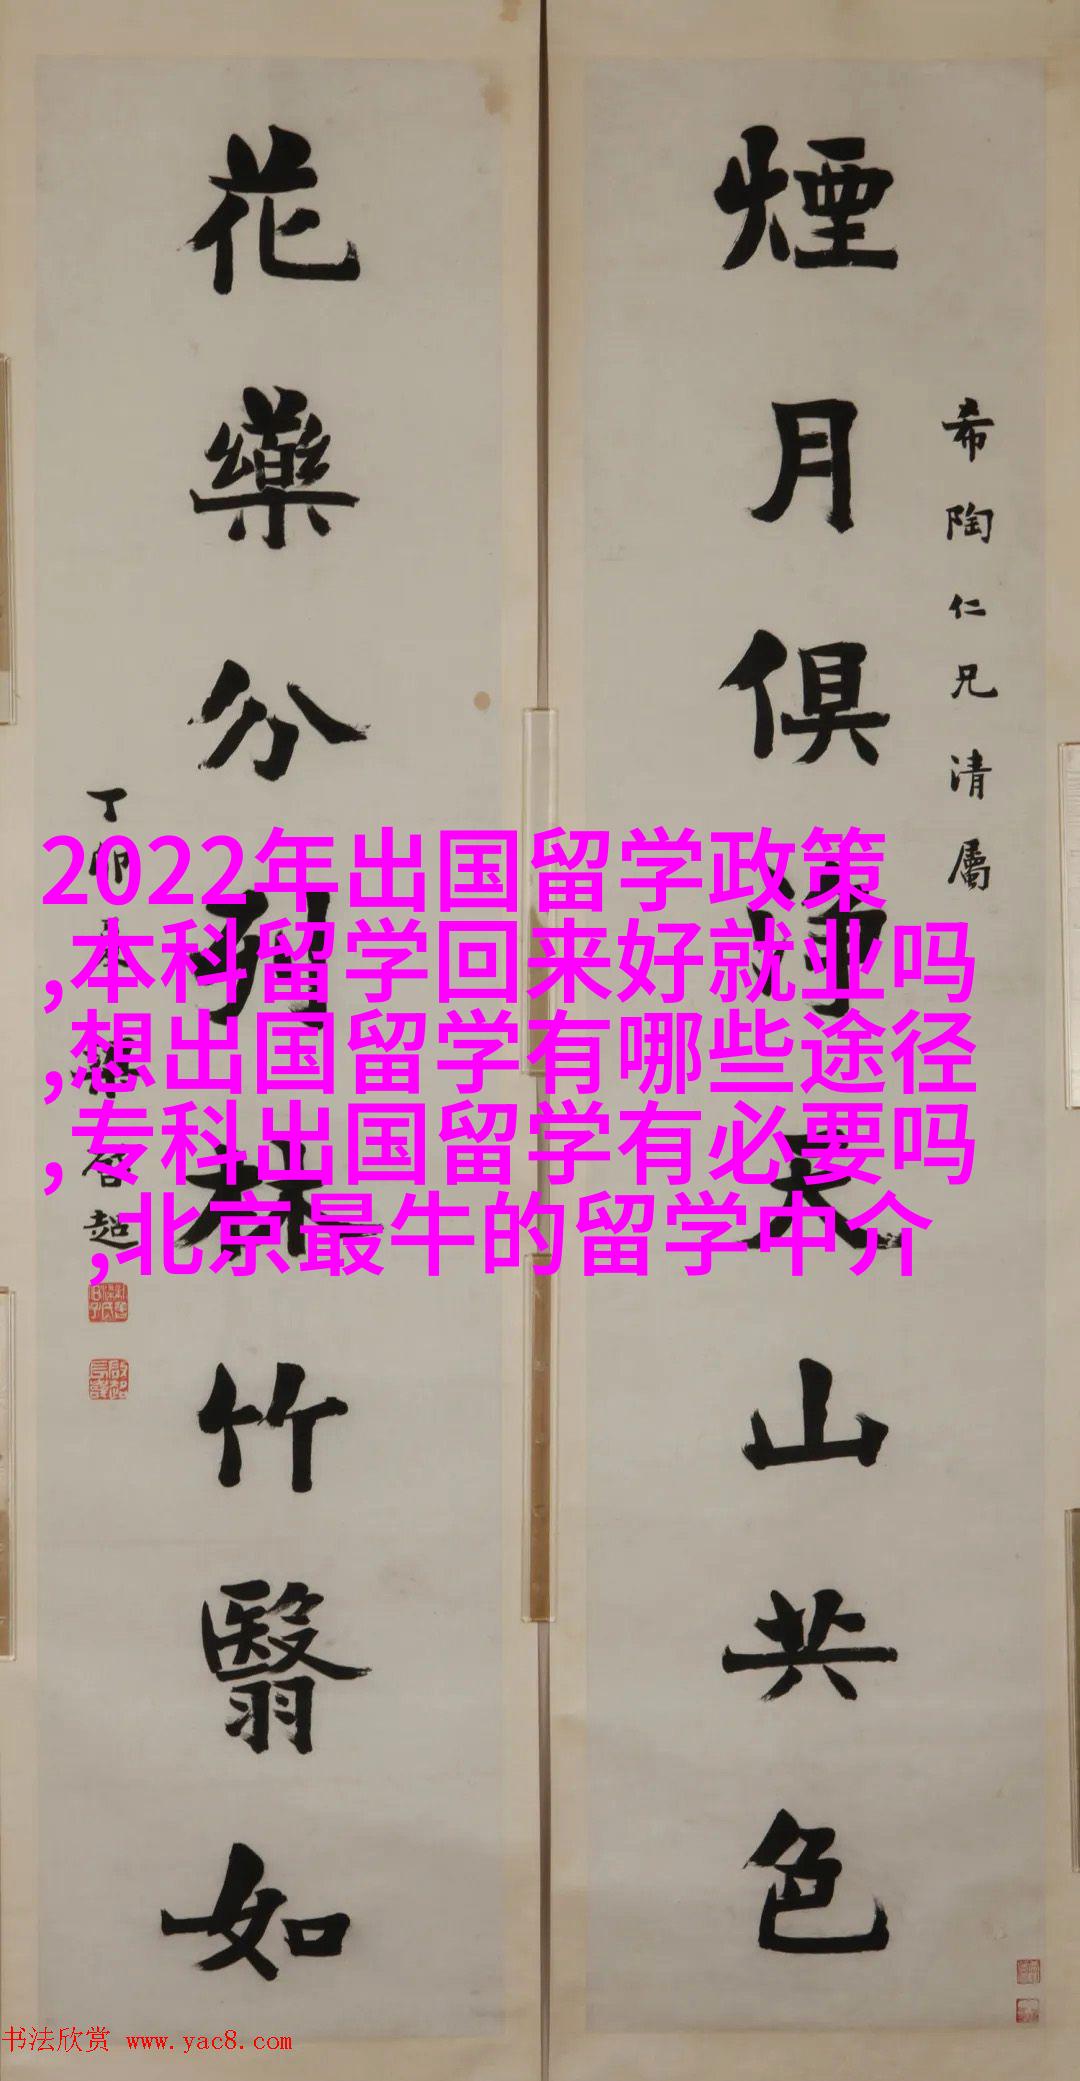 煙月俱淨天山共色
希陶仁兄清屬
花藥分列林竹翳如
丁卯 啓超
2022年出国留学政策
,本科留学回来好就业吗
,想出国留学有哪些途径
,专科出国留学有必要吗
,北京最牛的留学中介
书法欣赏 www.yac8.com